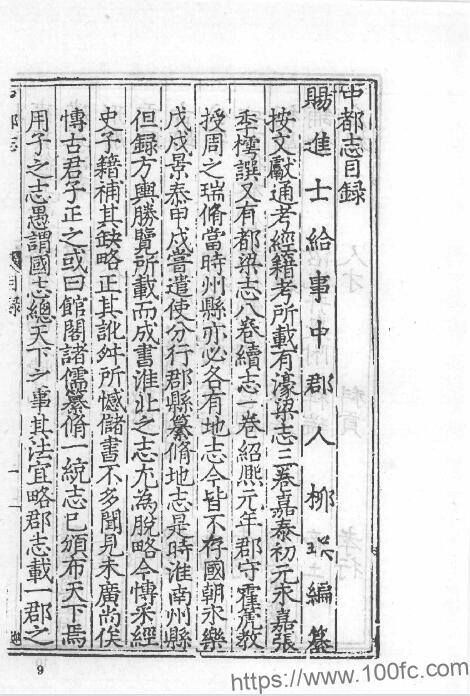 中都志目録
賜進士給事中郡人柳瑛編纂
按文獻通考經籍考所載有濠梁志三卷嘉泰初元永嘉張
季樗譔又有都梁志八卷續志一卷紹熙元年郡守霍篪教
授周之瑞脩當時州縣亦必各有地志今皆不存國朝永樂
戊戌景泰甲戌嘗遣使分行郡縣纂脩地志是時淮南州縣
但録方輿勝覽所載而成書淮北之志尤為脫略今慱采經
史子籍補其缺略正其訛舛所憾儲書不多聞見未廣尚俟
慱古君子正之或曰館閣諸儒纂脩一統志已頒布天下焉
用子之志愚謂國志總天下之事其法宜略郡志載一郡之
中都志
目録
一
9
https://www.100fc.com